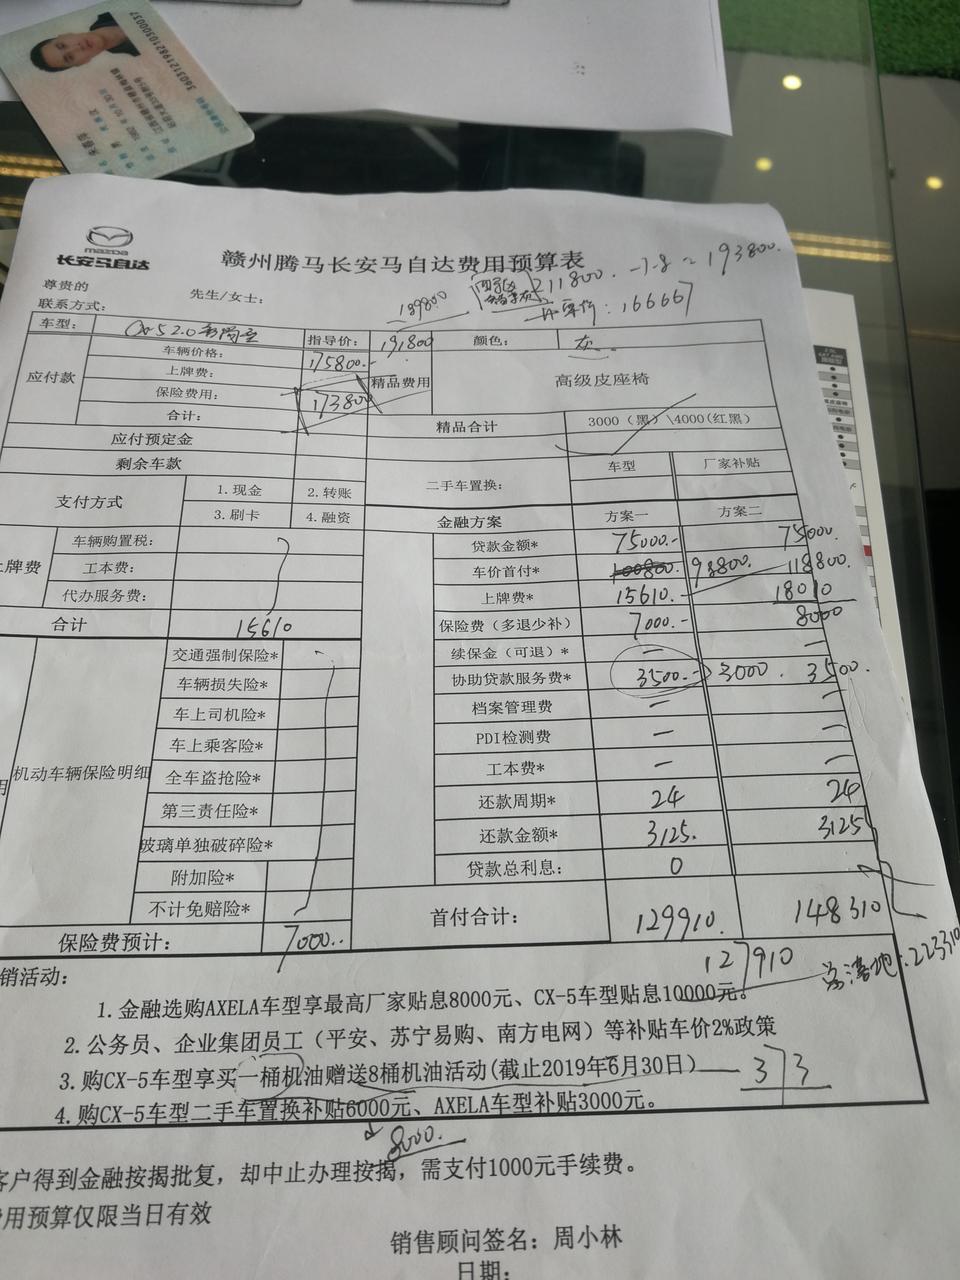 mazda
长安马自达
赣州腾马长安马自达费用预算表
尊贵的 先生/女士：
联系方式：
189800
211800. -1.8 = 193800.
16667
车型： 指导价： 191800 颜色： 灰
应付款 车辆价格： 175800.-
上牌费： 精品费用 高级皮座椅
保险费用： 173800
合计： 精品合计 3000（黑）\4000(红黑)
应付预定金
剩余车款 二手车置换： 车型 厂家补贴
支付方式 1.现金 2.转账
3.刷卡 4.融资 金融方案 方案一 方案二
上牌费 车辆购置税： 贷款金额* 75000.- 75000.
工本费： 车价首付* 100800.- 93800. 118800.
代办服务费： 上牌费* 15610.- 18010
合计 15610 保险费（多退少补） 7000.- 8000
交通强制保险* 续保金（可退）* — —
车辆损失险* 协助贷款服务费* 3500.- 3000. 3500.
车上司机险* 档案管理费 — —
车上乘客险* PDI检测费 — —
机动车辆保险明细 全车盗抢险* 工本费* — —
第三责任险* 还款周期* 24 24
玻璃单独破碎险* 还款金额* 3125. 3125
附加险* 贷款总利息： 0
不计免赔险* 首付合计： 129910. 148310
保险费预计： 7000..
127910 落地：223310
销活动：
1.金融选购AXELA车型享最高厂家贴息8000元、CX-5车型贴息10000元。
2.公务员、企业集团员工（平安、苏宁易购、南方电网）等补贴车价2%政策
3.购CX-5车型享买一桶机油赠送8桶机油活动(截止2019年6月30日) 373
4.购CX-5车型二手车置换补贴6000元、AXELA车型补贴3000元。
8000.
客户得到金融按揭批复，却中止办理按揭，需支付1000元手续费。
费用预算仅限当日有效
销售顾问签名：周小林
日期：